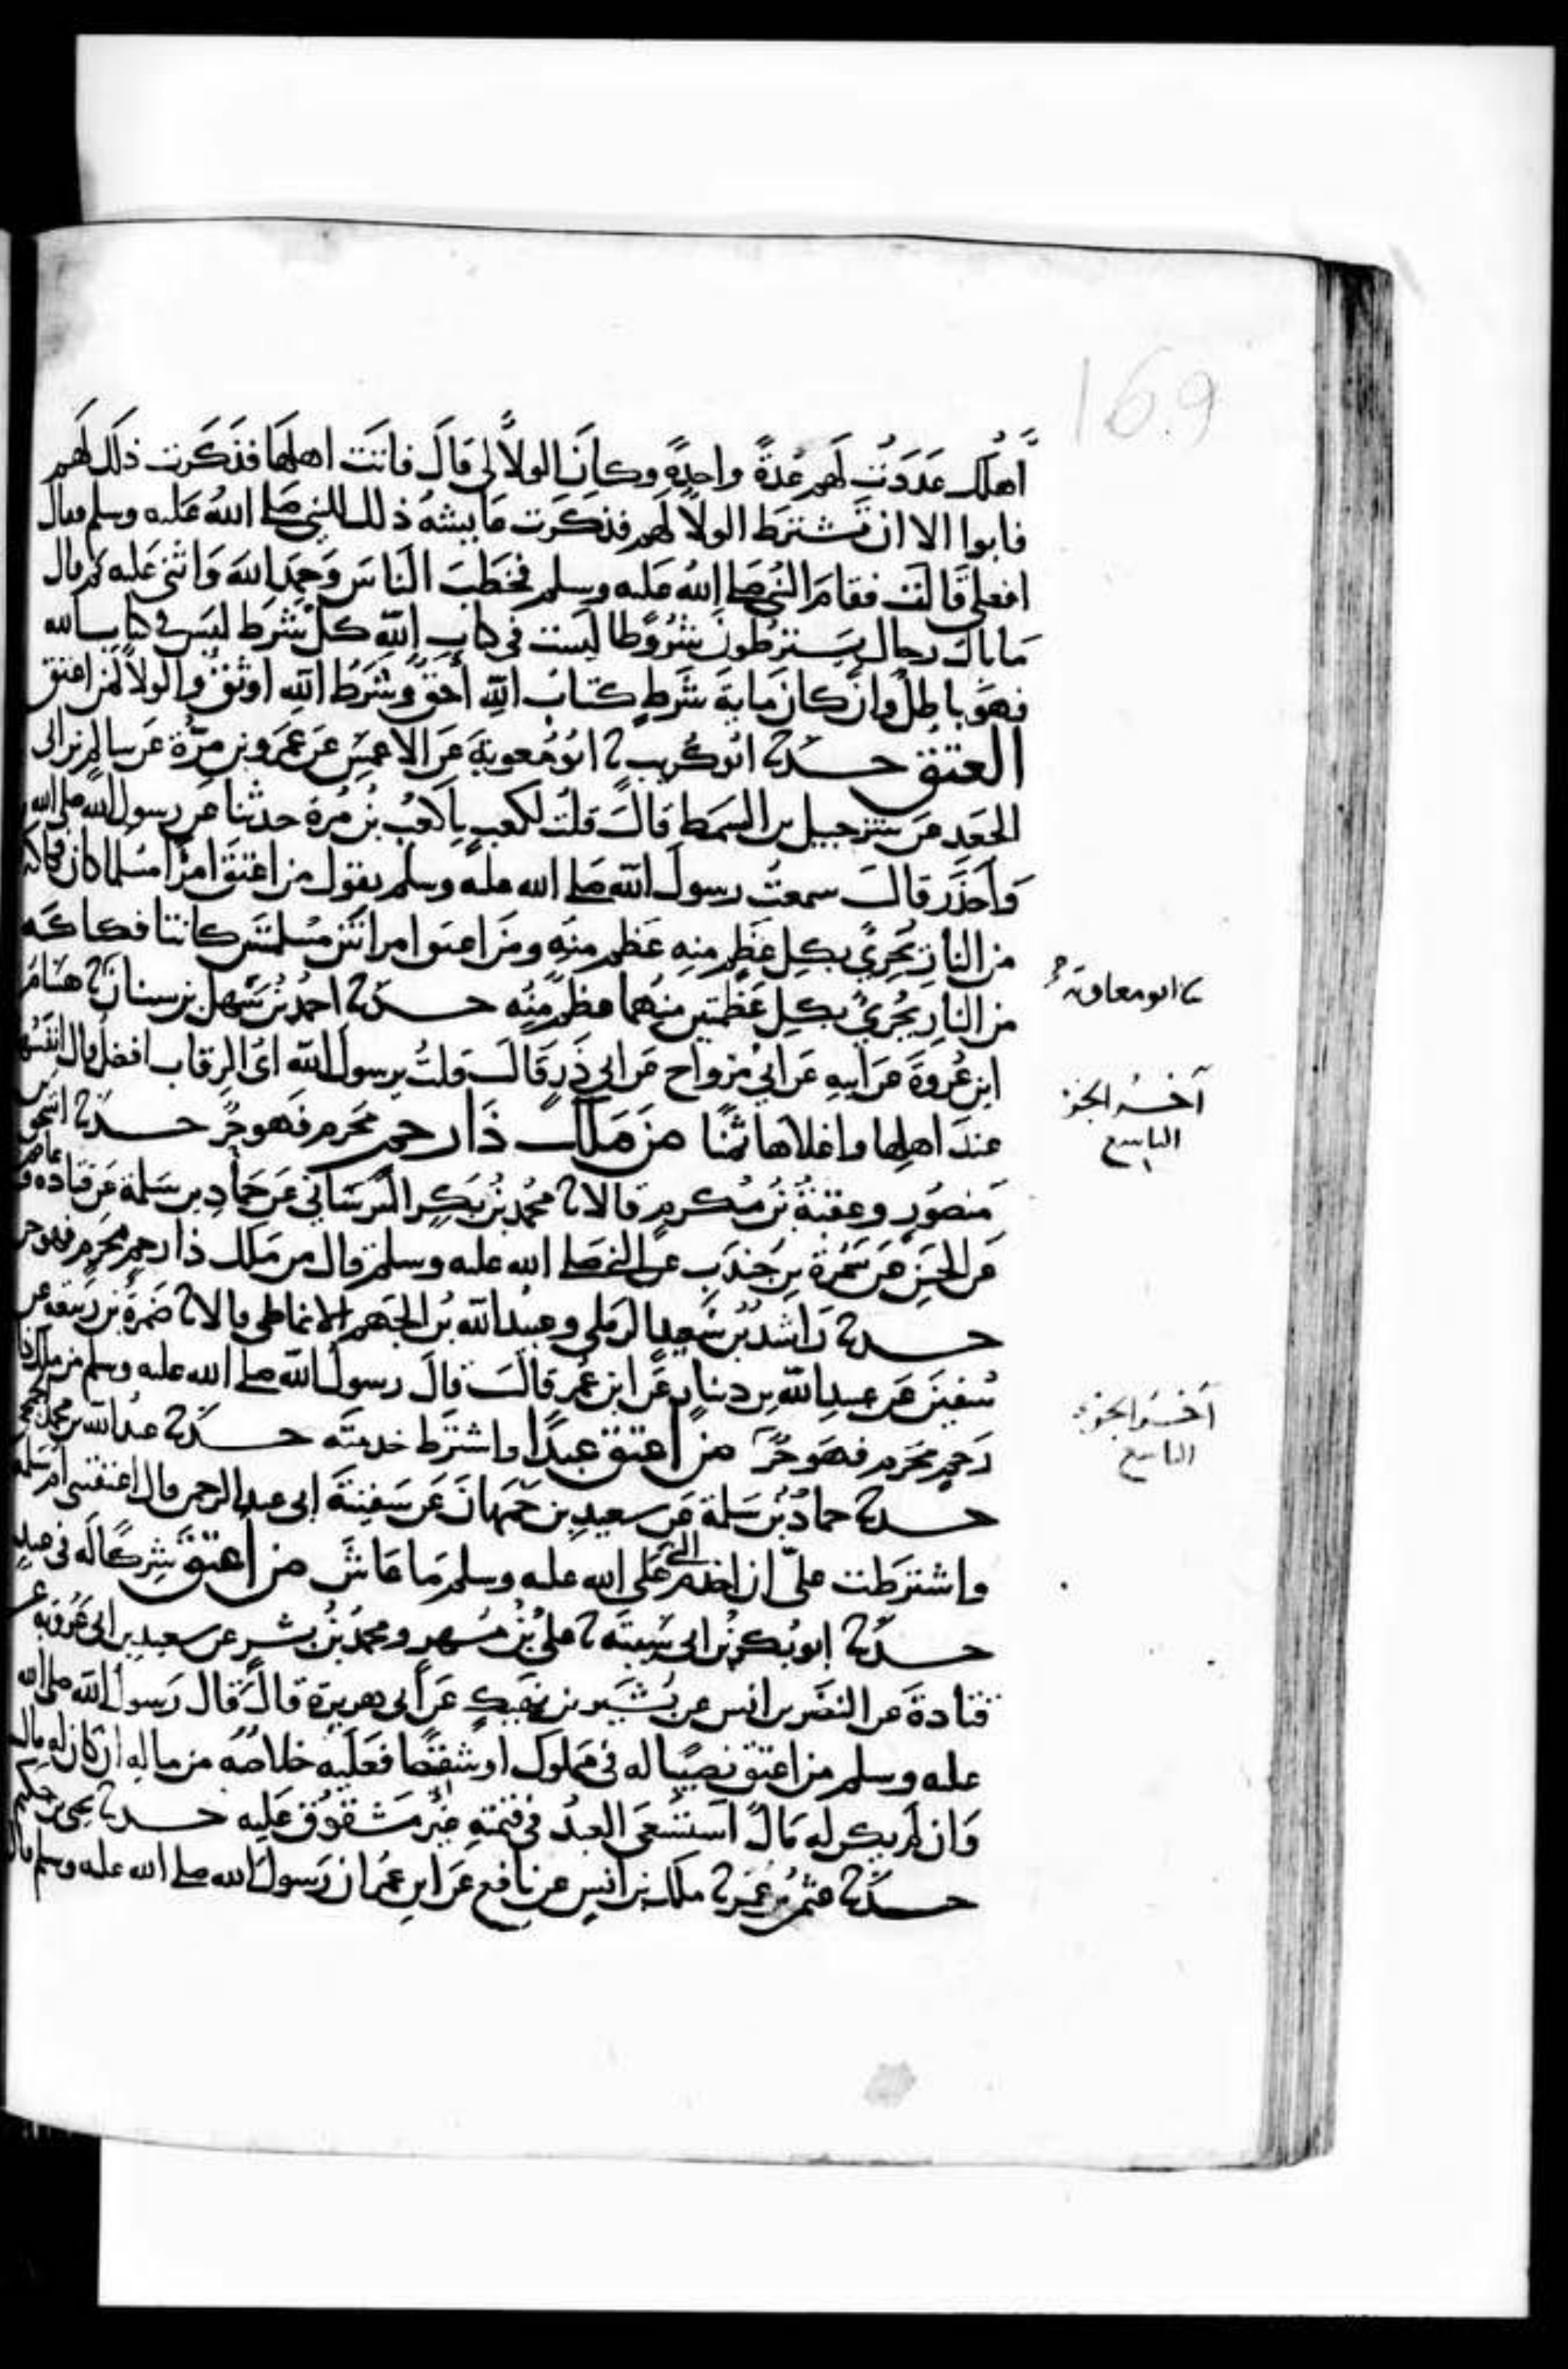 169
أهلك عددت لهم عدة واحدة وكان الولا لى قال فاتت اهلها فذكرت ذلك لهم
فابوا الا ان تشترط الولا لهم فذكرت عايشه ذلك للنبى صلى الله عليه وسلم فقال
افعلى قالت فقام النبى صلى الله عليه وسلم فخطب الناس وحمد الله واثنى عليه ثم قال
ما بال رجال يشترطون شروطا ليست فى كتاب الله كل شرط ليس فى كتاب الله
فهو باطل وان كان ماية شرط كتاب الله أحق وشرط الله اوثق والولا لمن اعتق
العتق حدثنا ابو كريب ثنا ابو معوية عن الاعمش عن عمرو بن مرة عن سالم بن ابى
الجعد عن شرحبيل بن السمط قال قلت لكعب ياكعب بن مرة حدثنا عن رسول الله صلى الله
واحذر قال سمعت رسول الله صلى الله عليه وسلم يقول من اعتق امرا مسلما كان فكاكه
من النار يجزى بكل عظم منه عظم منه ومن اعتق امراتين مسلمتين كانتا فكاكه
من النار يجزى بكل عظمتين منهما عظم منه حدثنا احمد بن سهل بن سنان ثنا هشام
ثنا ابو معاوية
ابن عروة عن ابيه عن ابى مزواح عن ابى ذر قال قلت يرسول الله اى الرقاب افضل قال انفسها
عند اهلها واغلاها ثمنا من ملك ذا رحم محرم فهو حر حدثنا اسحق بن
آخر الجز
التاسع
منصور وعقبة بن مكرم قالا ثنا محمد بن بكر البرسانى عن حماد بن سلمة عن قتاده وعاصم
عن الحسن عن سمرة بن جندب عن النبى صلى الله عليه وسلم قال من ملك ذا رحم محرم فهو حر
حدثنا راشد بن سعيد الرملى وعبيد الله بن الجهم الانماطى قالا ثنا ضمرة بن ربيعة عن
سفين عن عبد الله بن دينار عن ابن عمر قال قال رسول الله صلى الله عليه وسلم من ملك ذا
رحم محرم فهو حر من اعتق عبدا واشترط خدمته حدثنا عبد الله بن معوية الجمحى
آخر الجز
التاسع
حدثنا حماد بن سلمة عن سعيد بن جمهان عن سفينة ابى عبد الرحمن قال اعتقتنى ام سلمة
واشترطت على ان اخدم النبى صلى الله عليه وسلم ما عاش من اعتق شركا له فى عبد
حدثنا ابو بكر بن ابى شيبة ثنا على بن مسهر ومحمد بن بشر عن سعيد بن ابى عروبة عن
قتادة عن النضر بن انس عن بشير بن نهيك عن ابى هريرة قال قال رسول الله صلى الله
عليه وسلم من اعتق نصيبا له فى مملوك او شقصا فعليه خلاصه من ماله ان كان له مال
وان لم يكن له مال استسعى العبد فى قيمته غير مشقوق عليه حدثنا يحيى بن حكيم
حدثنا عثمن بن عمر ثنا ملك بن انس عن نافع عن ابن عمر ان رسول الله صلى الله عليه وسلم قال